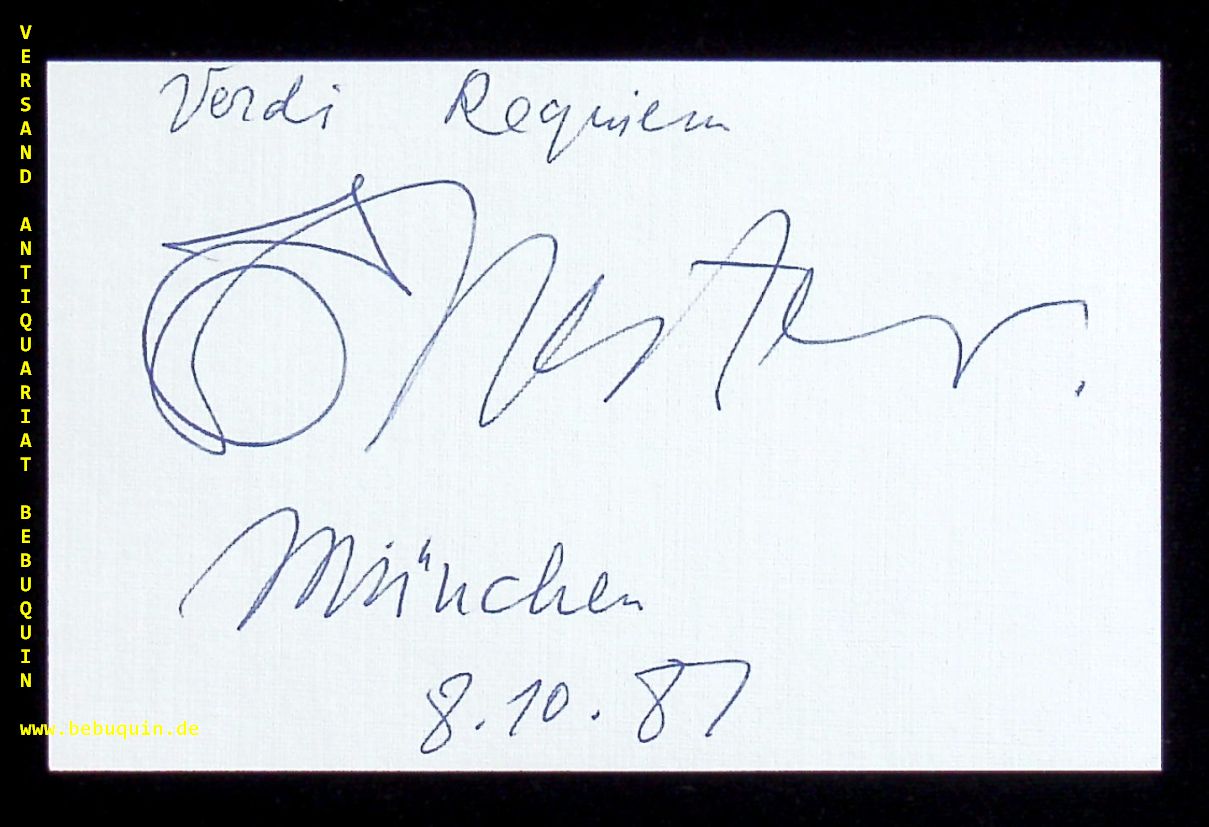 VERSAND ANTIQUARIAT BEBUQUIN
www.bebuquin.de
Verdi Requiem
München
8.10.87